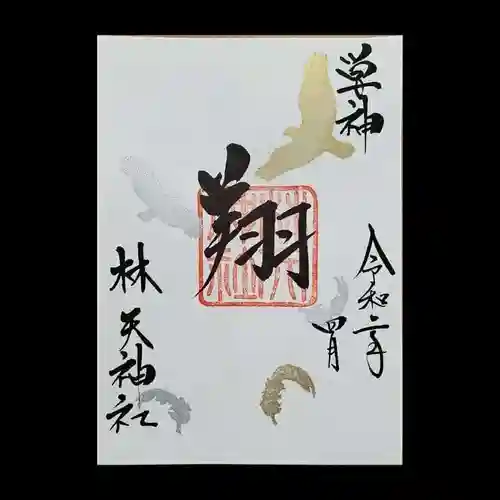 単神
翔
令和二年
四月
林天神社